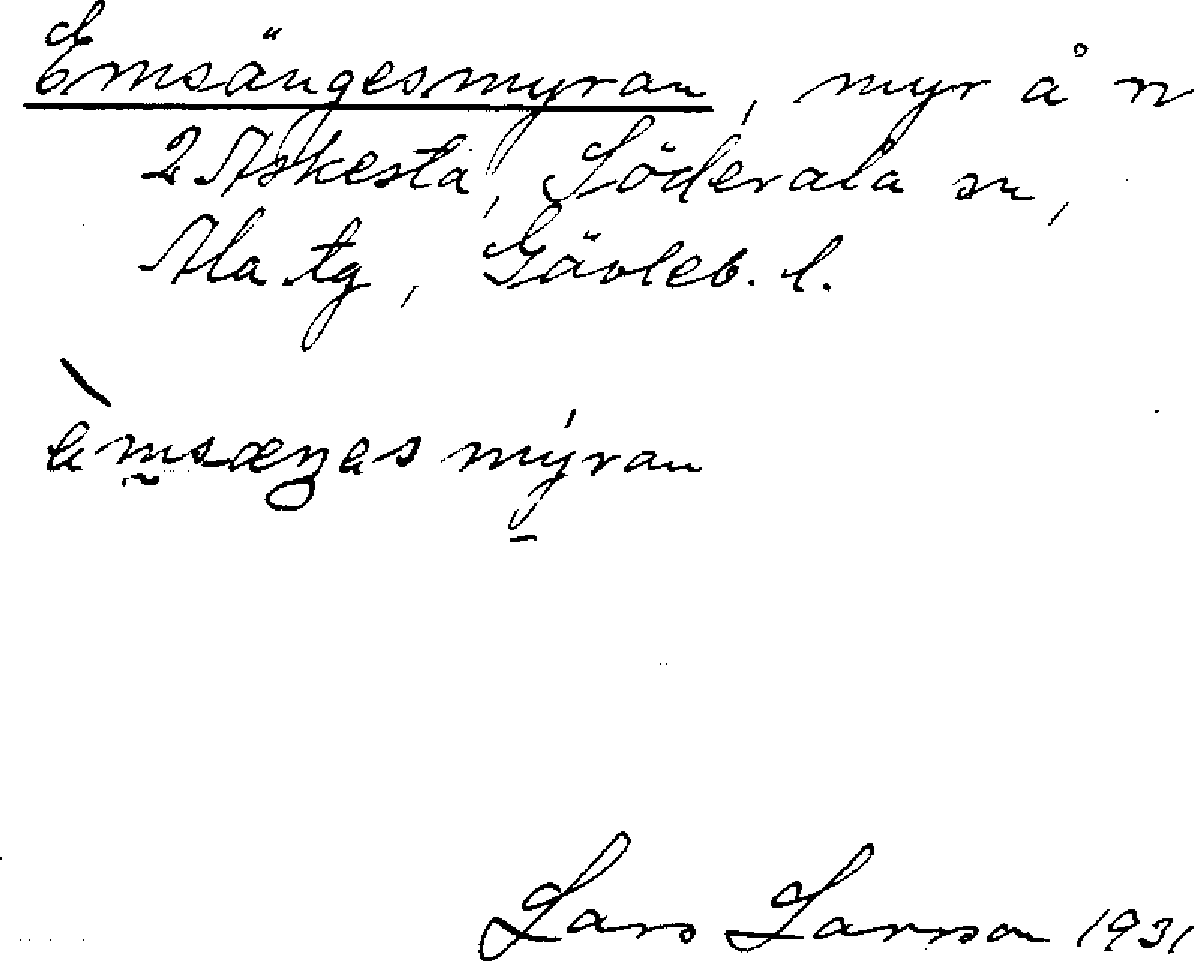 Emsängesmyran, myr å n
2 Askesta, Söderala sn,
Ala tg, Gävleb. l.
èmsæŋas mýran
Lars Larsson 1931